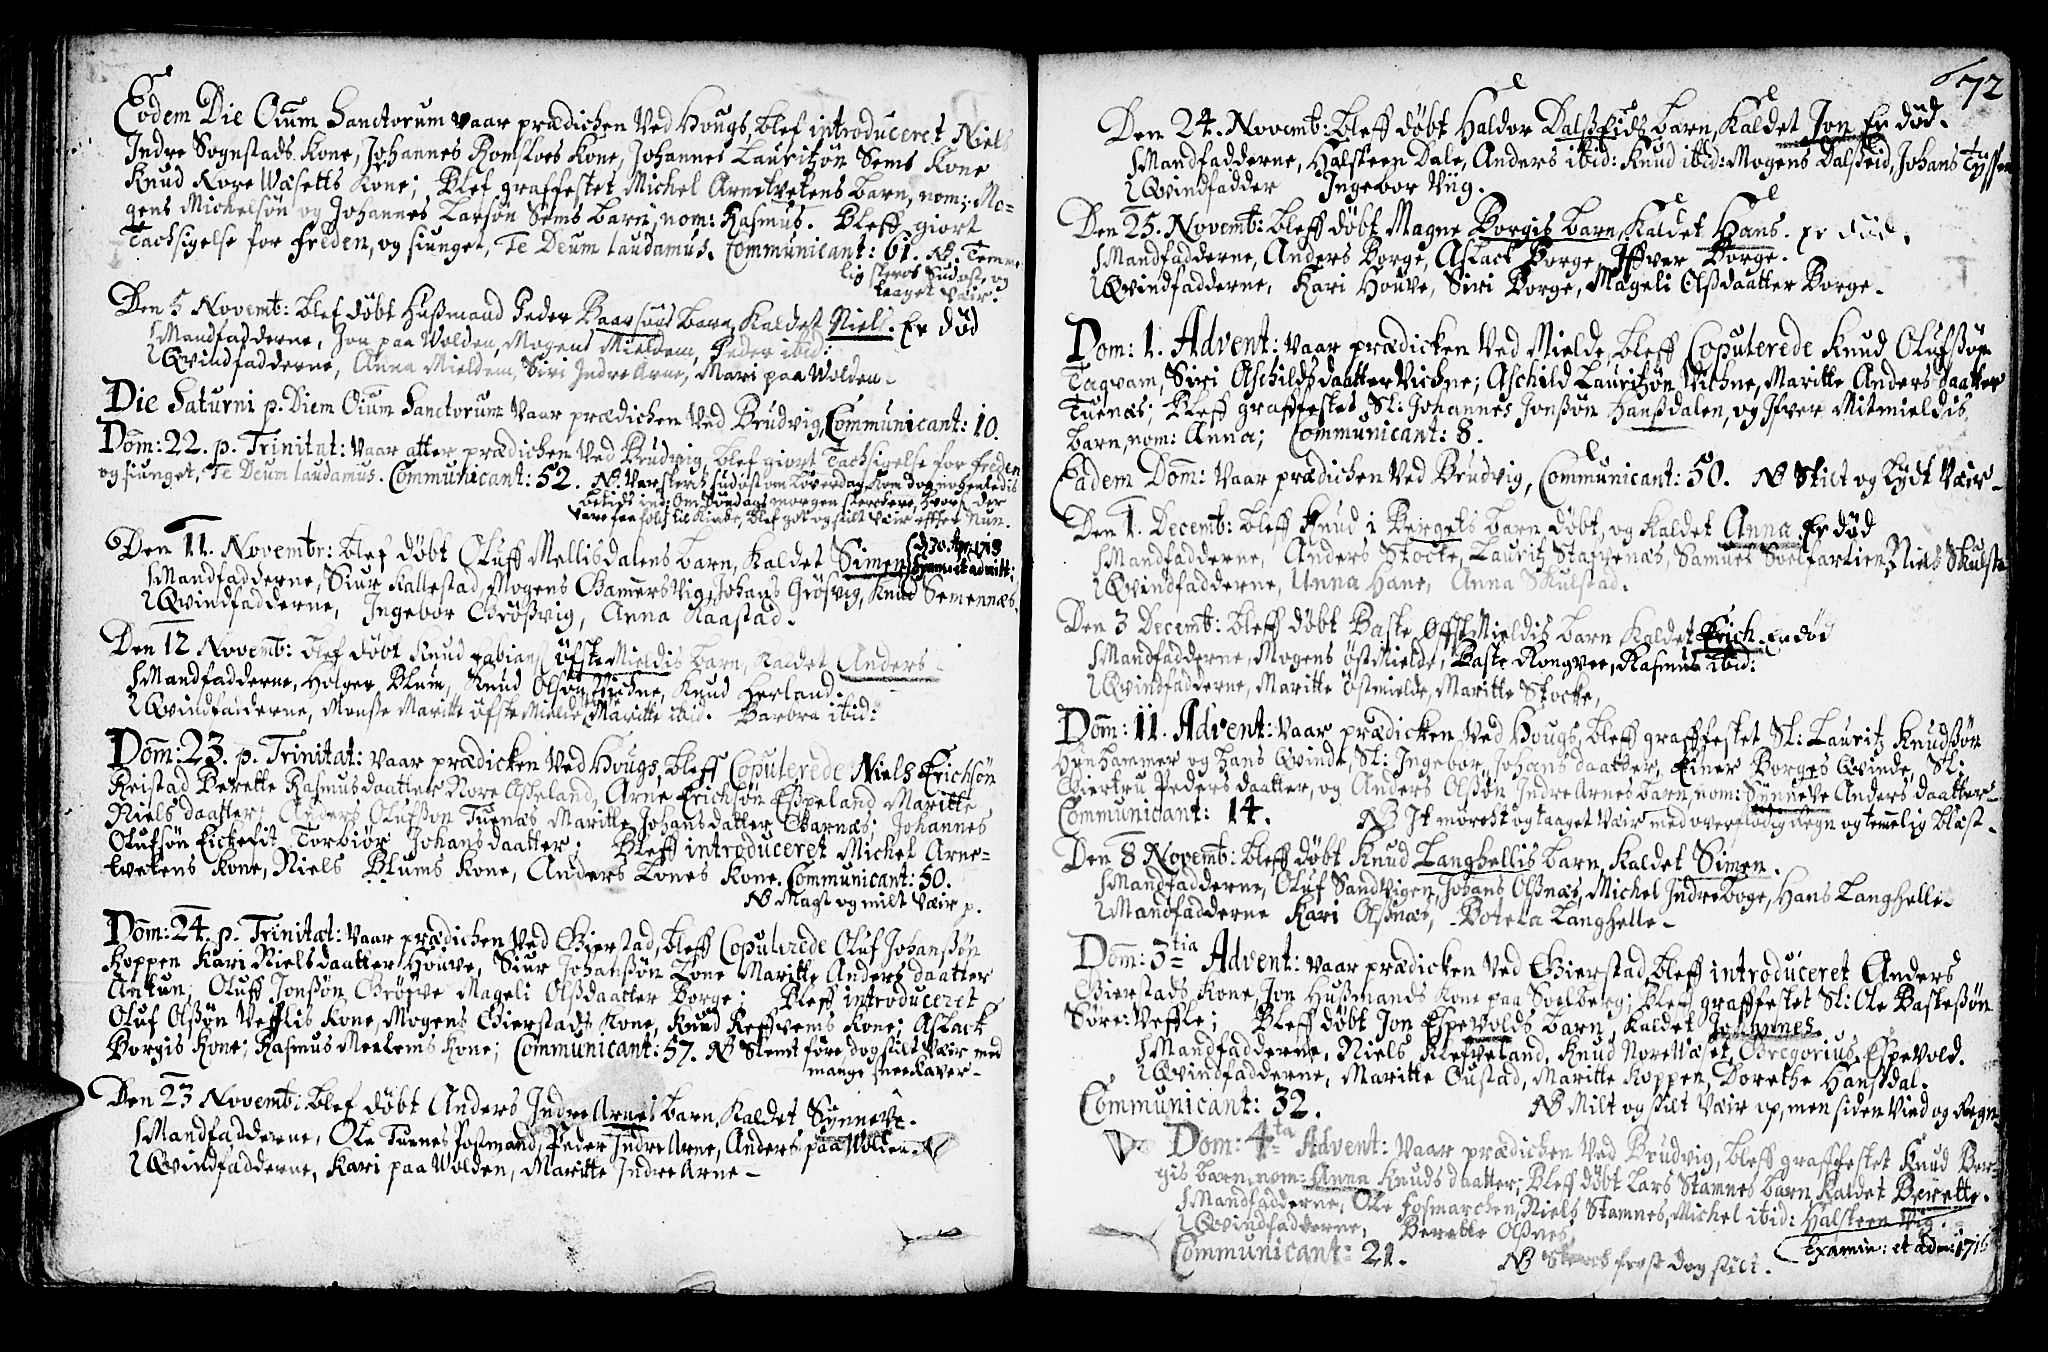 Eodem Die Oium Sanctorum Vaar prædichen Ved Hougs, blef introduceret Niels
Indre Sognstads Kone, Johannes Romsloes Kone, Johannes Lauritzøn Sems Kone
Knud Nore Wæsetts Kone; Blef graffestet Michel Arnetvetens barn, nom: Mo-
gens Michelsøn og Johannes Larsøn Sems barn, nom: Rasmus. Bleff giort
Tachsigelse for freden, og siunget, Te Deum laudamus. Communicant: 61. NB. Temme-
lig sterch Sudost og
taaget Vær.
Den 5 Novemb: blef døbt Hussmand Peder barn, Kaldet Niels. Er død
Mandfadderne, Jon paa Wolden, Mogens Mieldem, Peder ibid:
Qvindfadderne, Anna Mieldem, Siri Indre Arne, Mari paa Wolden.
Die Saturni p. Diem Oium Sanctorum Vaar prædichen Ved Brudvig, Communicant: 10.
Dom: 22. p. Trinitat: Vaar atter prædichen Ved Brudvig, blef giort Tachsigelse for freden
og siunget, Te Deum laudamus. Communicant: 52. NB. Var sterch sudost om Løverdag
om Søndags morgen
Vare faa folch til Kirche, blef got og stilt Vær effter Nun.
Den 11. Novembr: blef døbt Oluff Mellisdalens barn, Kaldet Simen
Mandfadderne, Siur Kallestad, Mogens Gamersvig, Johans Grøsvig, Knud Semennæs.
Qvindfadderne, Ingebor Grøssvig, Anna Kaastad.
Den 12 Novemb: blef døbt Knud Fabians øfste Mieldis barn, Kaldet Anders
Mandfadderne, Holger Blum, Knud Olsøn Vichne, Knud Herland.
Qvindfadderne, Monsse Maritte øfste Mielde, Maritte ibid. Barbra ibid:
Dom: 23. p. Trinitat: Vaar prædicken Ved Hougs, bleff Copulerede Niels Erichsøn
Reistad Berette Rasmusdaatter Nore Asheland, Arne Erichsøn Esspeland Maritte
Nielsdaatter, Anders Olufsøn Tuenæs Maritte Johansdatter Garnæs; Johannes
Olufsøn Eickedit Torbiør Johansdaatter; Bleff introduceret Michel Arne-
tvetens Kone, Niels Blums Kone, Anders Lones Kone. Communicant: 50.
NB Magt og milt Vær p.
Dom: 24. p. Trinitat: Vaar prædichen Ved Gierstad, bleff Copulerede Oluf Johanssøn
Koppen Kari Nielsdaatter Houve, Siur Johanssøn Lone Maritte Anders daatter
Ankun, Oluff Jonssøn Grøsve Mageli Olssdaatter Borge; Bleff introduceret
Oluf Olssøn Vefflis Kone, Mogens Gierstads Kone, Knud Reffvems Kone; Aslack
Borgis Kone; Rasmus Meelems Kone; Communicant: 57. NB Slemt føre dog stilt Vær med
mange sneekaver
Den 23 Novemb: blef døbt Anders Indre Arnes barn, Kaldet Synneve.
Mandfadderne, Ole Tuenes Postmand, Peder Indre Arne, Anders paa Wolden.
Qvindfadderne, Kari paa Wolden, Maritte Indre Arne
72
Den 24. Novemb: bleff døbt Haldor Dalsseids barn, Kaldet Jon. Er død.
Mandfadderne, Halsteen Dale, Anders ibid: Knud ibid: Mogens Dalseid, Johans
Qvindfadder Ingebor Viig.
Den 25. Novemb: bleff døbt Magne Borgis barn, Kaldet Hans. er død.
Mandfadderne, Anders Borge, Aslack Borge, Iffver Borge.
Qvindfadderne, Kari Houve, Siri Borge, Mageli Olssdaatter Borge.
Dom: 1. Advent: Vaar prædicken Ved Mielde, bleff Copulerede Knud Olufssøn
Taqvam, Siri Aschildsdaatter Vichne; Aschild Lauritzøn Vichne, Maritte Anders daatter
Tuenæs; Bleff graffestet Sl: Johannes Jonssøn Hanssdalen, og Ifver Mitmieldis
barn, nom: Anna; Communicant: 8.
Eadem Dom: Vaar prædichen Ved Brudvig, Communicant: 50. NB Stilt og Lydt Vær
Den 1. Decemb: bleff Knud i Bergets barn døbt, og Kaldet Anna. Er død
Mandfadderne, Anders Stocke, Lauritz Stavenæs, Samuel Niels Skulsta
Qvindfadderne, Unna Hane, Anna Skulstad.
Den 3 Decemb: bleff døbt Baste Øffst Mieldis barn Kaldet Erich. Er død
Mandfadderne, Mogens Østmielde, Baste Rongvee, Rasmus ibid:
Qvindfadderne, Maritte Østmielde, Maritte Stocke,
Dom: 11. Advent: Vaar prædicken Ved Hougs, bleff graffestet Sl: Lauritz Knudssøn
Hynhammer og hans Qvinde, Sl: Ingebor Johansdaatter, Einer Borges Qvinde, Sl:
Giertru Pedersdaatter, og Anders Olssøn Indre Arnes barn, nom: Synneve Anders daatter
Communicant: 14. NB It mørcht og taaget Vær med overflødig regn og temelig blæst
Den 8 Novemb: bleff døbt Knud Langhellis barn, Kaldet Simen.
Mandfadderne, Oluf Sandvigen, Johans Olssnæs, Michel Indreboge, Hans Langhelle
Mandfadderne Kari Olssnæs, Botela Langhelle
Dom: 3tia Advent: Vaar prædicken Ved Gierstad, bleff introduceret Anders
Gierstads Kone, Jon Hussmands Kone paa Soelberg; Bleff graffestet Sl: Ole Bastessøn
Søre: Veffle; Bleff døbt Jon Espevolds barn, Kaldet Johannes.
Mandfadderne, Niels Klefveland, Knud Nore Wæset, Gregorius Espevold.
Qvindfadderne, Maritte Oustad, Maritte Koppen, Dorethe Hanssdal.
Communicant: 32. NB Milt og stilt Vær op, men siden Vind og Regn
Dom: 4ta Advent: Vaar prædichen Ved Brudvig, bleff graffestet Knud Ber-
gis barn, nom: Anna Knudsdaatter; Bleff døbt Lars Stamnes barn, Kaldet Berette.
Mandfadderne, Ole Fosmarchen, Niels Stamnes, Michel ibid: Halsteen Vig.
Qvindfadderne, Beretle Olssnes
Communicant: 21. NB Sterch frost dog stilt.
Examin: et adm: 1716